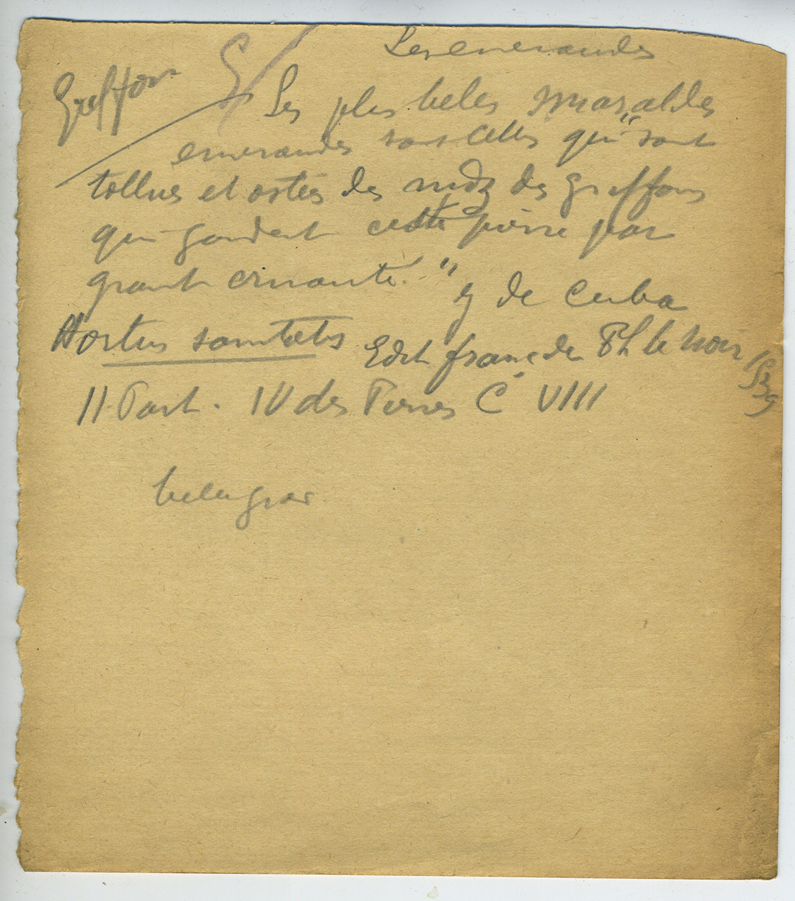 Les emeraudes
Griffon G
Les plus beles smaraldes
emeraudes sont celles qui "sont
tollues et ostées des nidz des Griffons
qui gardent ceste pierre par
grant cruauté." y de Cuba
Hortus sanitatis Edit franç de Ph le Noir 1539
II Part. IV des Pierres C. VIII